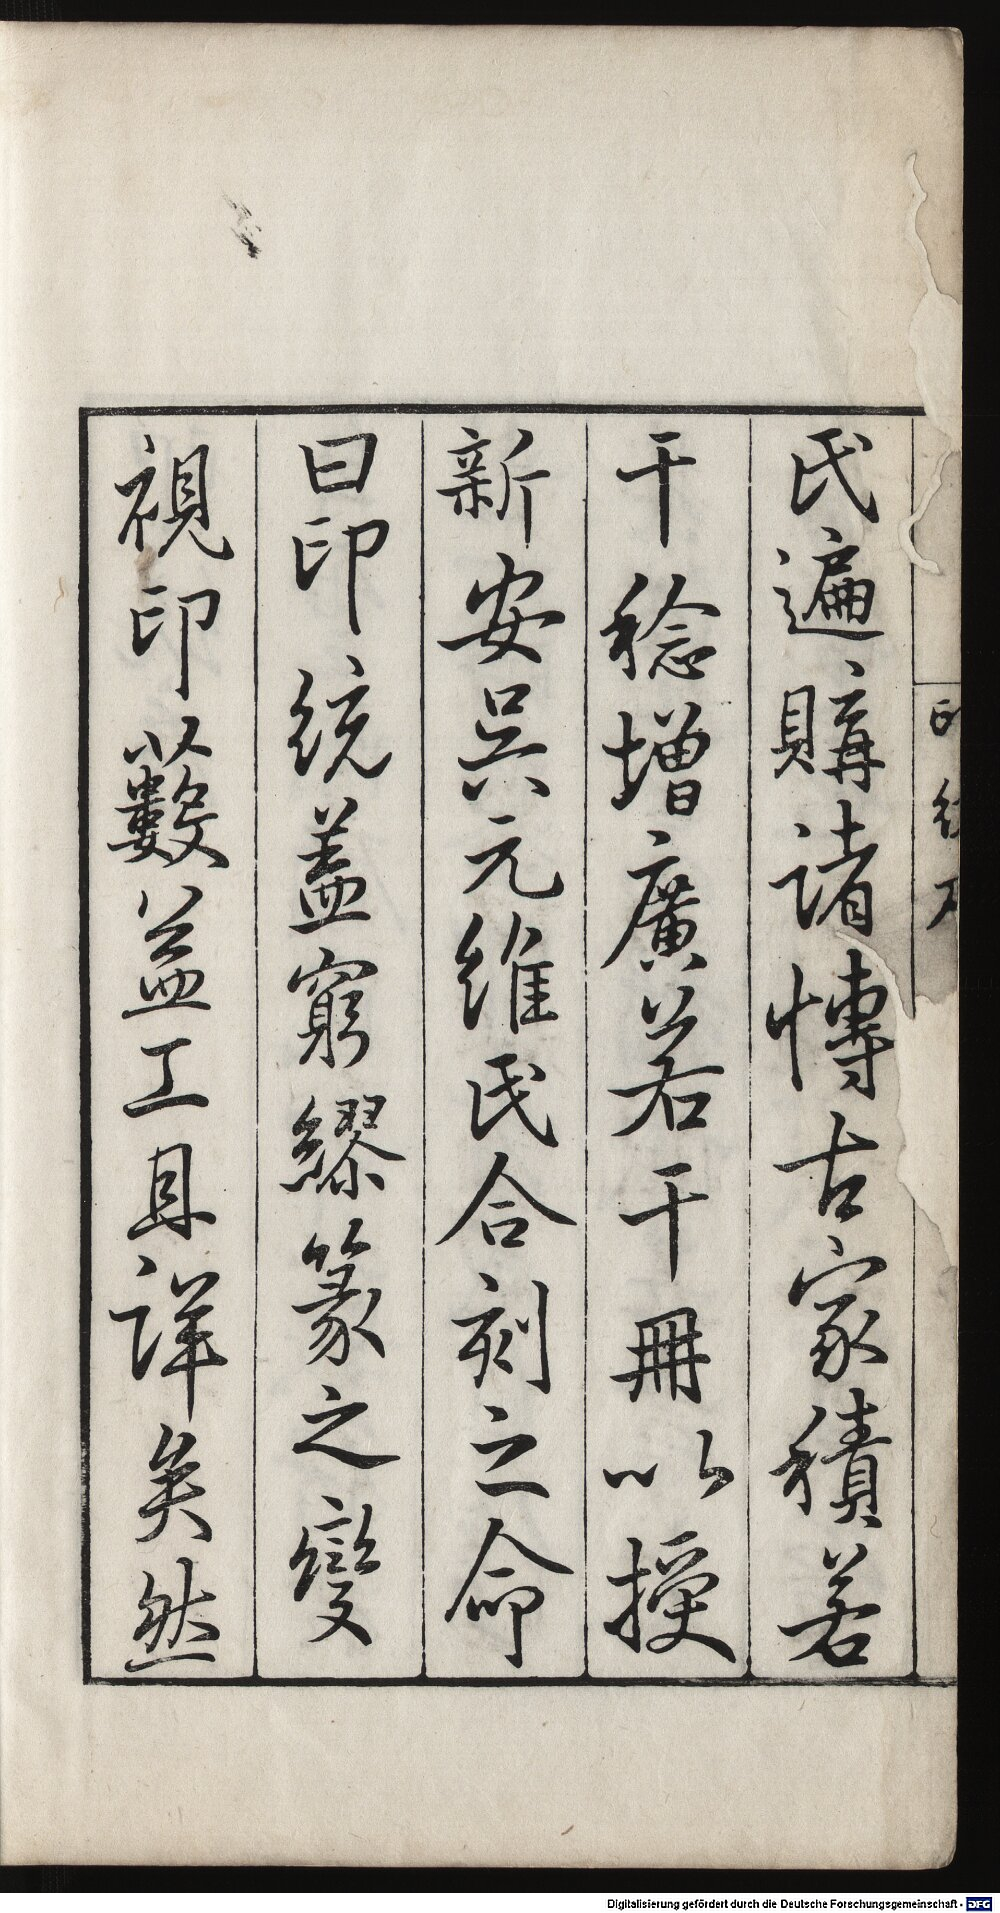 氏遍購諸博古家積若
干稔增廣若干冊以授
新安吳元維氏合刻之命
曰印統蓋窮繆篆之變
視印藪益工且詳矣然
印統
Digitalisierung gefördert durch die Deutsche Forschungsgemeinschaft - DFG